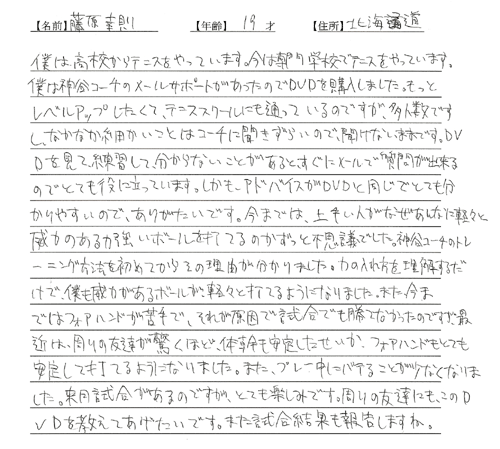 【名前】藤原幸則 【年齢】19才 【住所】北海道
僕は高校からテニスをやっています。今は専門学校でテニスをやっています。
僕は神谷コーチのメールサポートがあったのでDVDを購入しました。もっと
レベルアップしたくて、テニススクールにも通っているのですが、多人数です
し、なかなか細かいことはコーチに聞きずらいので、聞けないままです。DV
Dを見て練習して、分からないことがあると、すぐにメールで質問が出来る
のでとても役に立っています。しかも、アドバイスがDVDと同じでとても分
かりやすいので、ありがたいです。今までは、上手い人がなぜあんなに軽々と
威力のある力強いボールを打てるのかずっと不思議でした。神谷コーチのトレ
ーニング方法を初めてからその理由が分かりました。力の入れ方を理解するだ
けで、僕も威力があるボールが軽々と打てるようになりました。また今ま
ではフォアハンドが苦手で、それが原因で試合でも勝てなかったのですが、最
近は、周りの友達が驚くほど、体幹も安定したせいか、フォアハンドもとても
安定して打てるようになりました。また、プレー中にバテることが少なくなりま
した。来月試合があるのですが、とても楽しみです。周りの友達にも、このD
VDを教えてあげたいです。また試合結果も報告しますね。